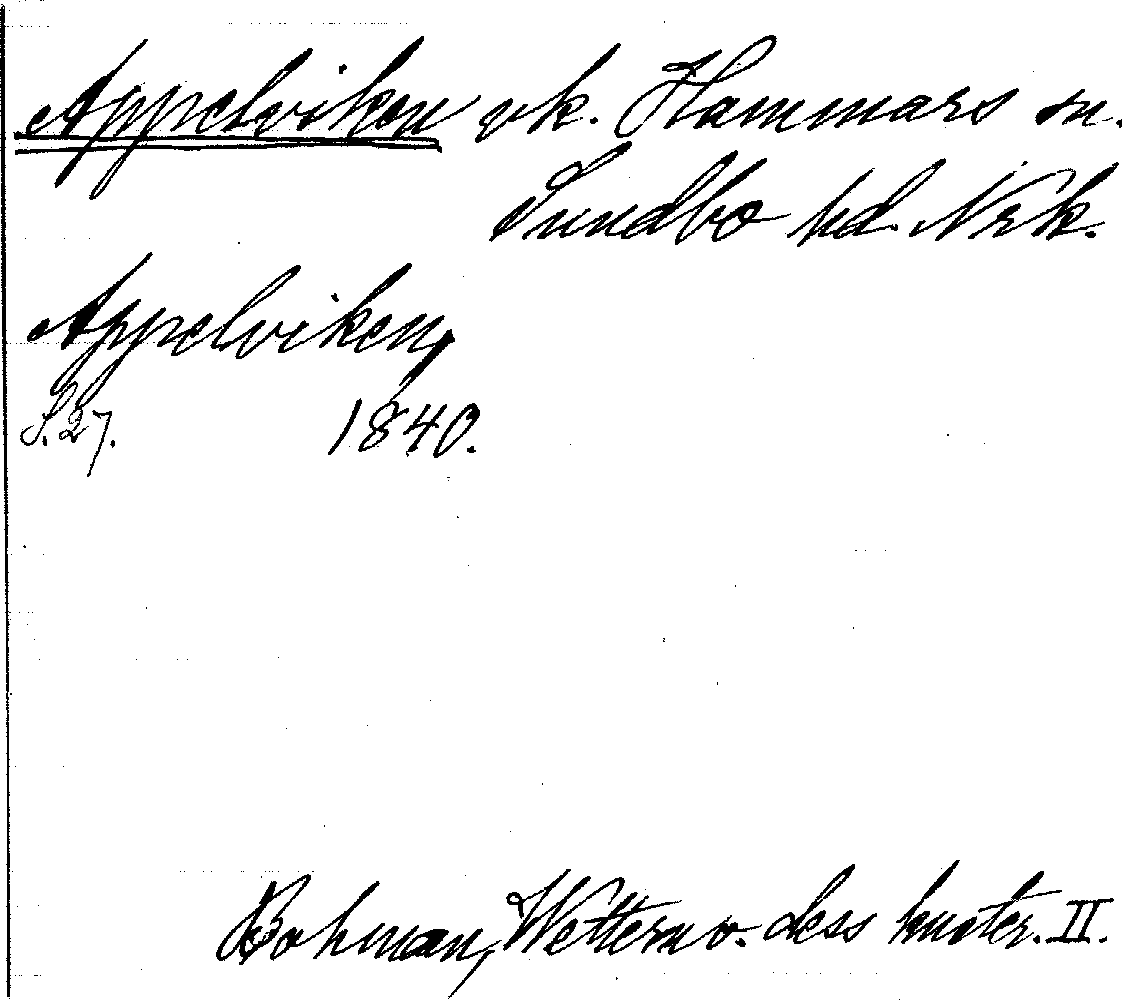 Appelviken vk. Hammars sn.
Sundbo hd. Nrk.
Appelviken,
S. 27. 1840.
Bohman, Wettern o. dess kuster. II.